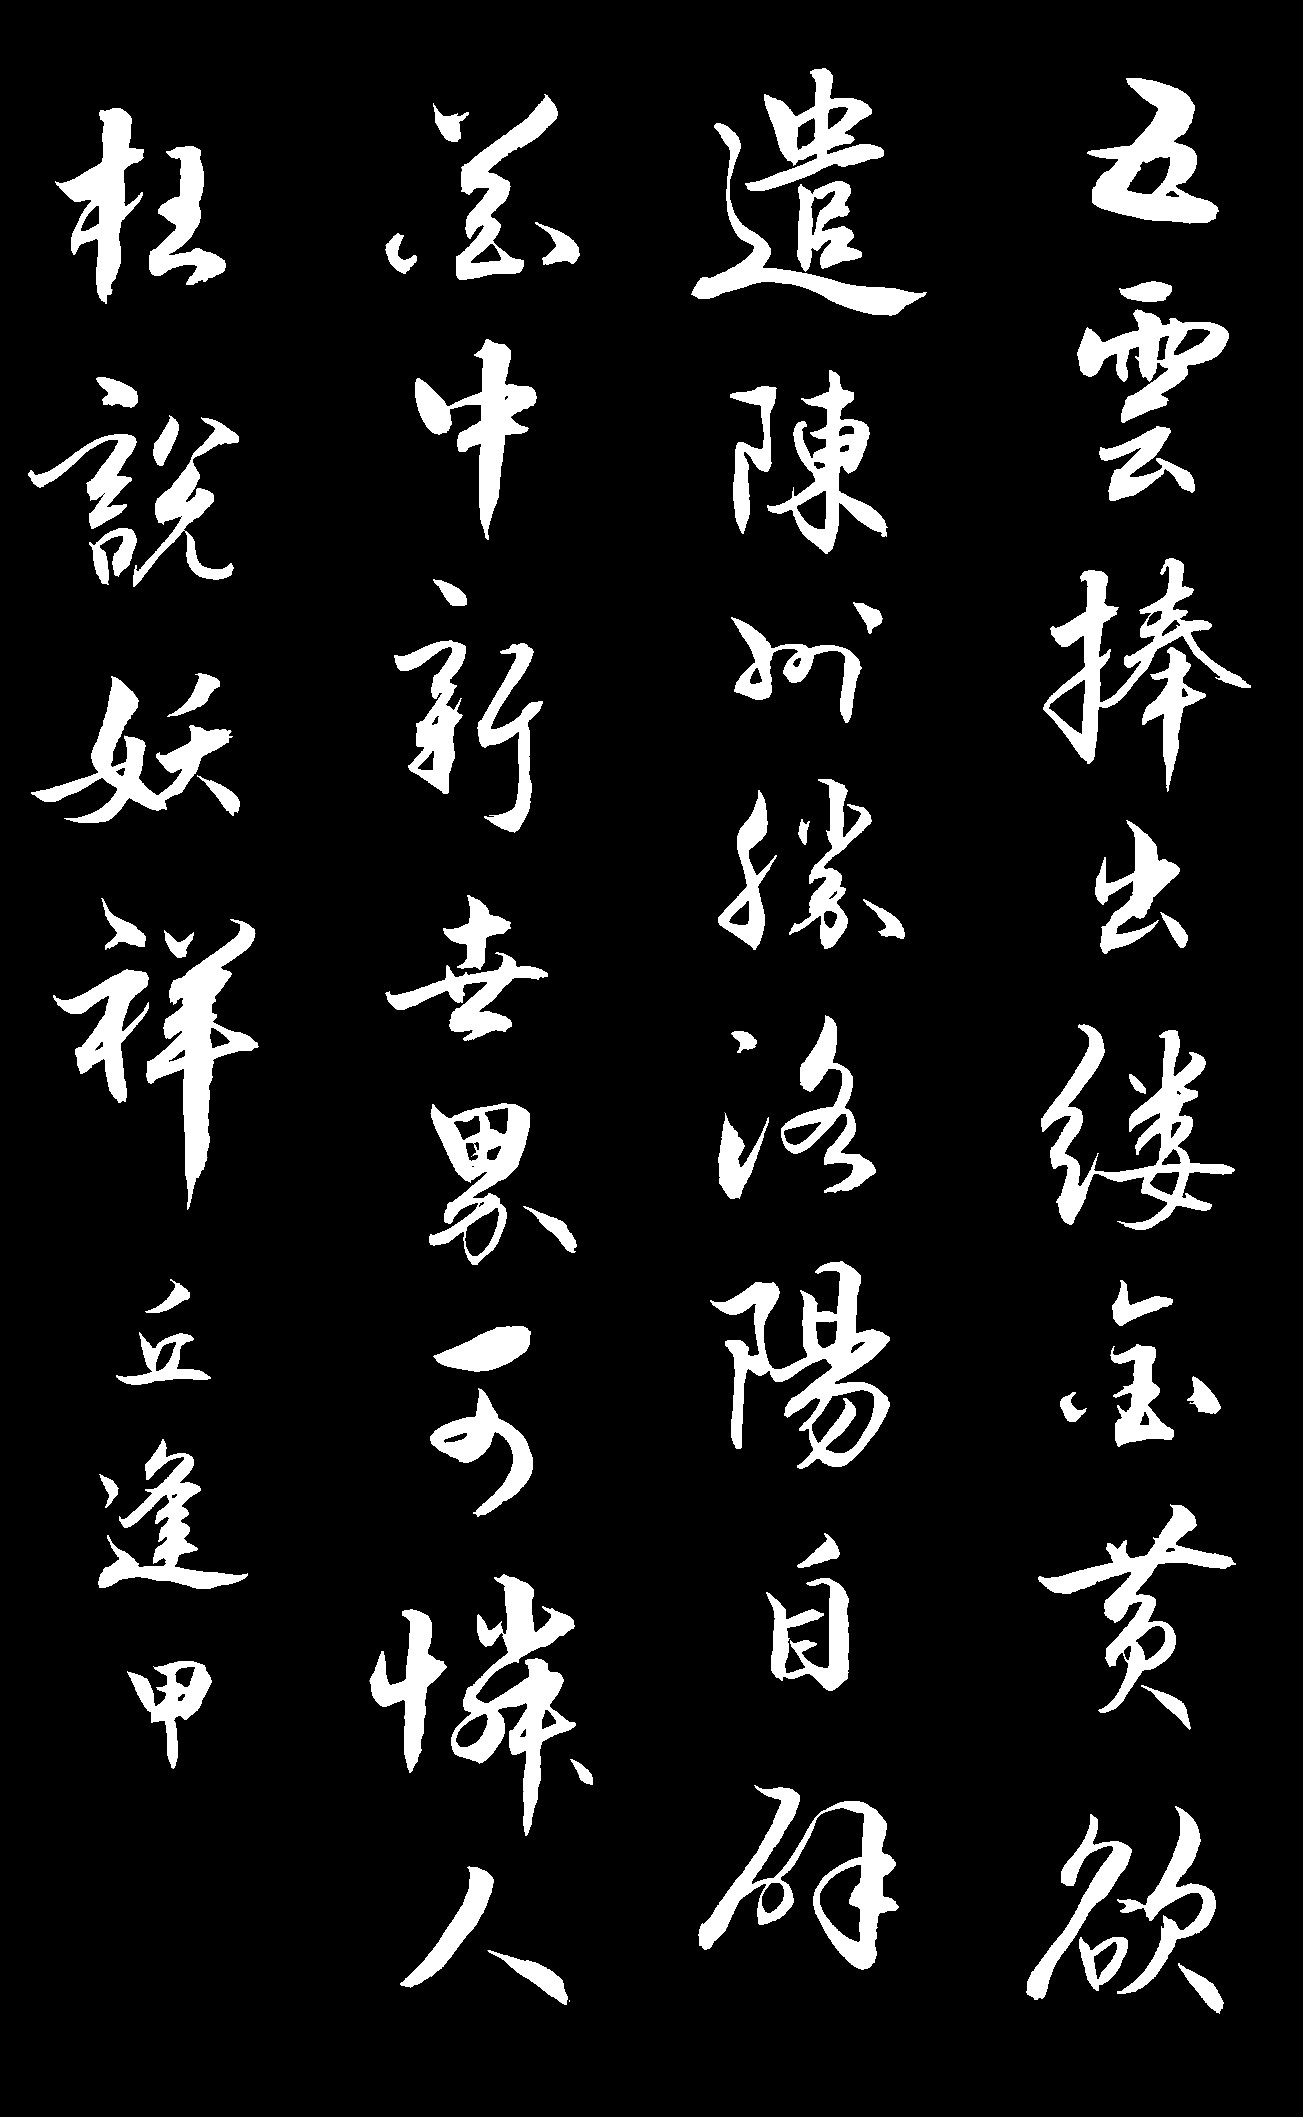 五雲捧出縷金黄欲
遣陳州勝洛陽自辟
花中新世界可憐人
枉說妖祥丘逢甲